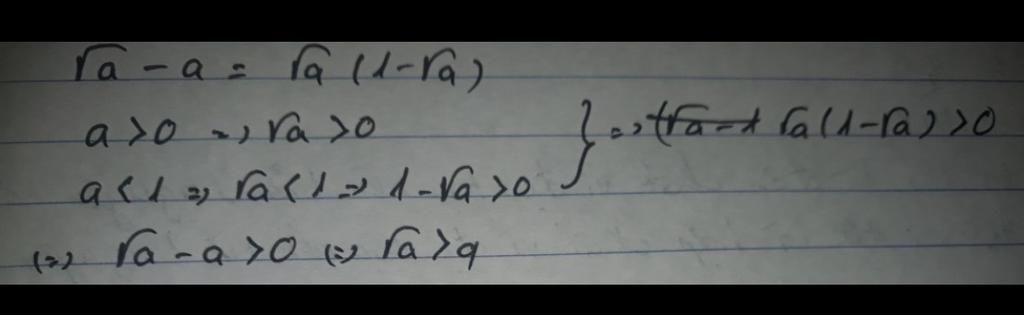 √a - a = √a (1-√a)
a>0 => √a>0
a<1 => √a<1 => 1-√a>0 } => √a(1-√a)>0
(=) √a-a>0 (=) √a>a